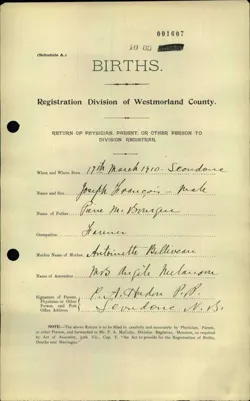 001607
(Schedule A.)
BIRTHS.
Registration Division of Westmorland County.
RETURN OF PHYSICIAN, PARENT, OR OTHER PERSON TO
DIVISION REGISTRAR.
When and Where Born 17th March 1910 - Scoudouc
Name and Sex Joseph François - Male
Name of Father M. Bourque
Occupation Farmer
Maiden Name of Mother Antoinette Belliveau
Name of Accoucheur Mrs Melanson
Signature of Parent,
Physician or Other
Person, and Post
Office Address
A. Hudon P.P.
Scoudouc N.B.
NOTE.—The above Return is to be filled in carefully and accurately by Physician, Parent,
or other Person, and forwarded to Mr. Division Registrar, Moncton, as required
by Act of Assembly, 50th Vic., Cap. V. "An Act to provide for the Registration of Births,
Deaths and Marriages."